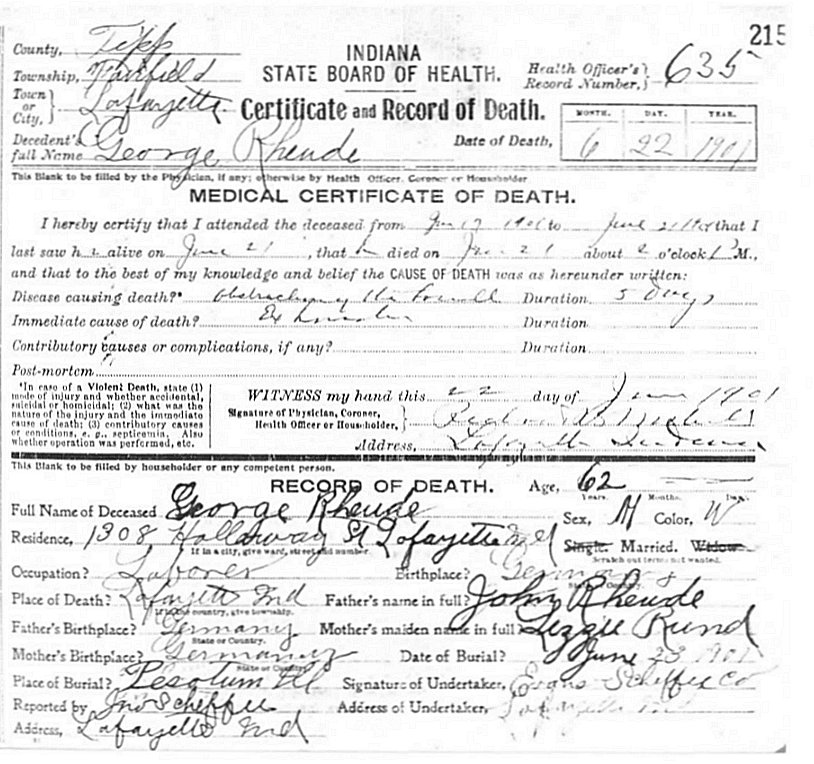 215
County, Tipp
INDIANA
STATE BOARD OF HEALTH.
Health Officer's } Record Number, } 635
Township, Fairfield
Town or City, } Lafayette
Certificate and Record of Death.
Decedent's full Name George Rheude
Date of Death, MONTH. DAY. YEAR.
6 22 1901
This Blank to be filled by the Physician, if any; otherwise by Health Officer, Coroner or Householder
MEDICAL CERTIFICATE OF DEATH.
I hereby certify that I attended the deceased from 1901 to June that I
last saw h alive on June 21, that died on 21 about o'clock P M.,
and that to the best of my knowledge and belief the CAUSE OF DEATH was as hereunder written:
Disease causing death?* Duration 5 Days
Immediate cause of death? Duration
Contributory causes or complications, if any? Duration
Post-mortem
*In case of a Violent Death, state (1)
mode of injury and whether accidental,
suicidal or homicidal; (2) what was the
nature of the injury and the immediate
cause of death; (3) contributory causes
or conditions, e. g., septicemia. Also
whether operation was performed, etc.
WITNESS my hand this 22 day of June 1901
Signature of Physician, Coroner, Health Officer or Householder, }
Address, Lafayette Indiana
This Blank to be filled by householder or any competent person.
RECORD OF DEATH.
Age, 62
Years. Months. Days.
Full Name of Deceased George Rheude
Sex, M Color, W
Residence, 1308 Hollaway St Lafayette Ind
If in a city, give ward, street and number.
Single. Married. Widow
Scratch out terms not wanted.
Occupation? Laborer Birthplace? Germany
State or Country.
Place of Death? Lafayette Ind Father's name in full? John Rheude
If in the country, give township.
Father's Birthplace? Germany Mother's maiden name in full? Lizzie Rund
State or Country.
Mother's Birthplace? Germany Date of Burial? June 23 1901
State or Country.
Place of Burial? Pesotum Ill Signature of Undertaker, Evans Scheffee Co
Reported by Jno Scheffee Address of Undertaker, Lafayette Ind
Address, Lafayette Ind